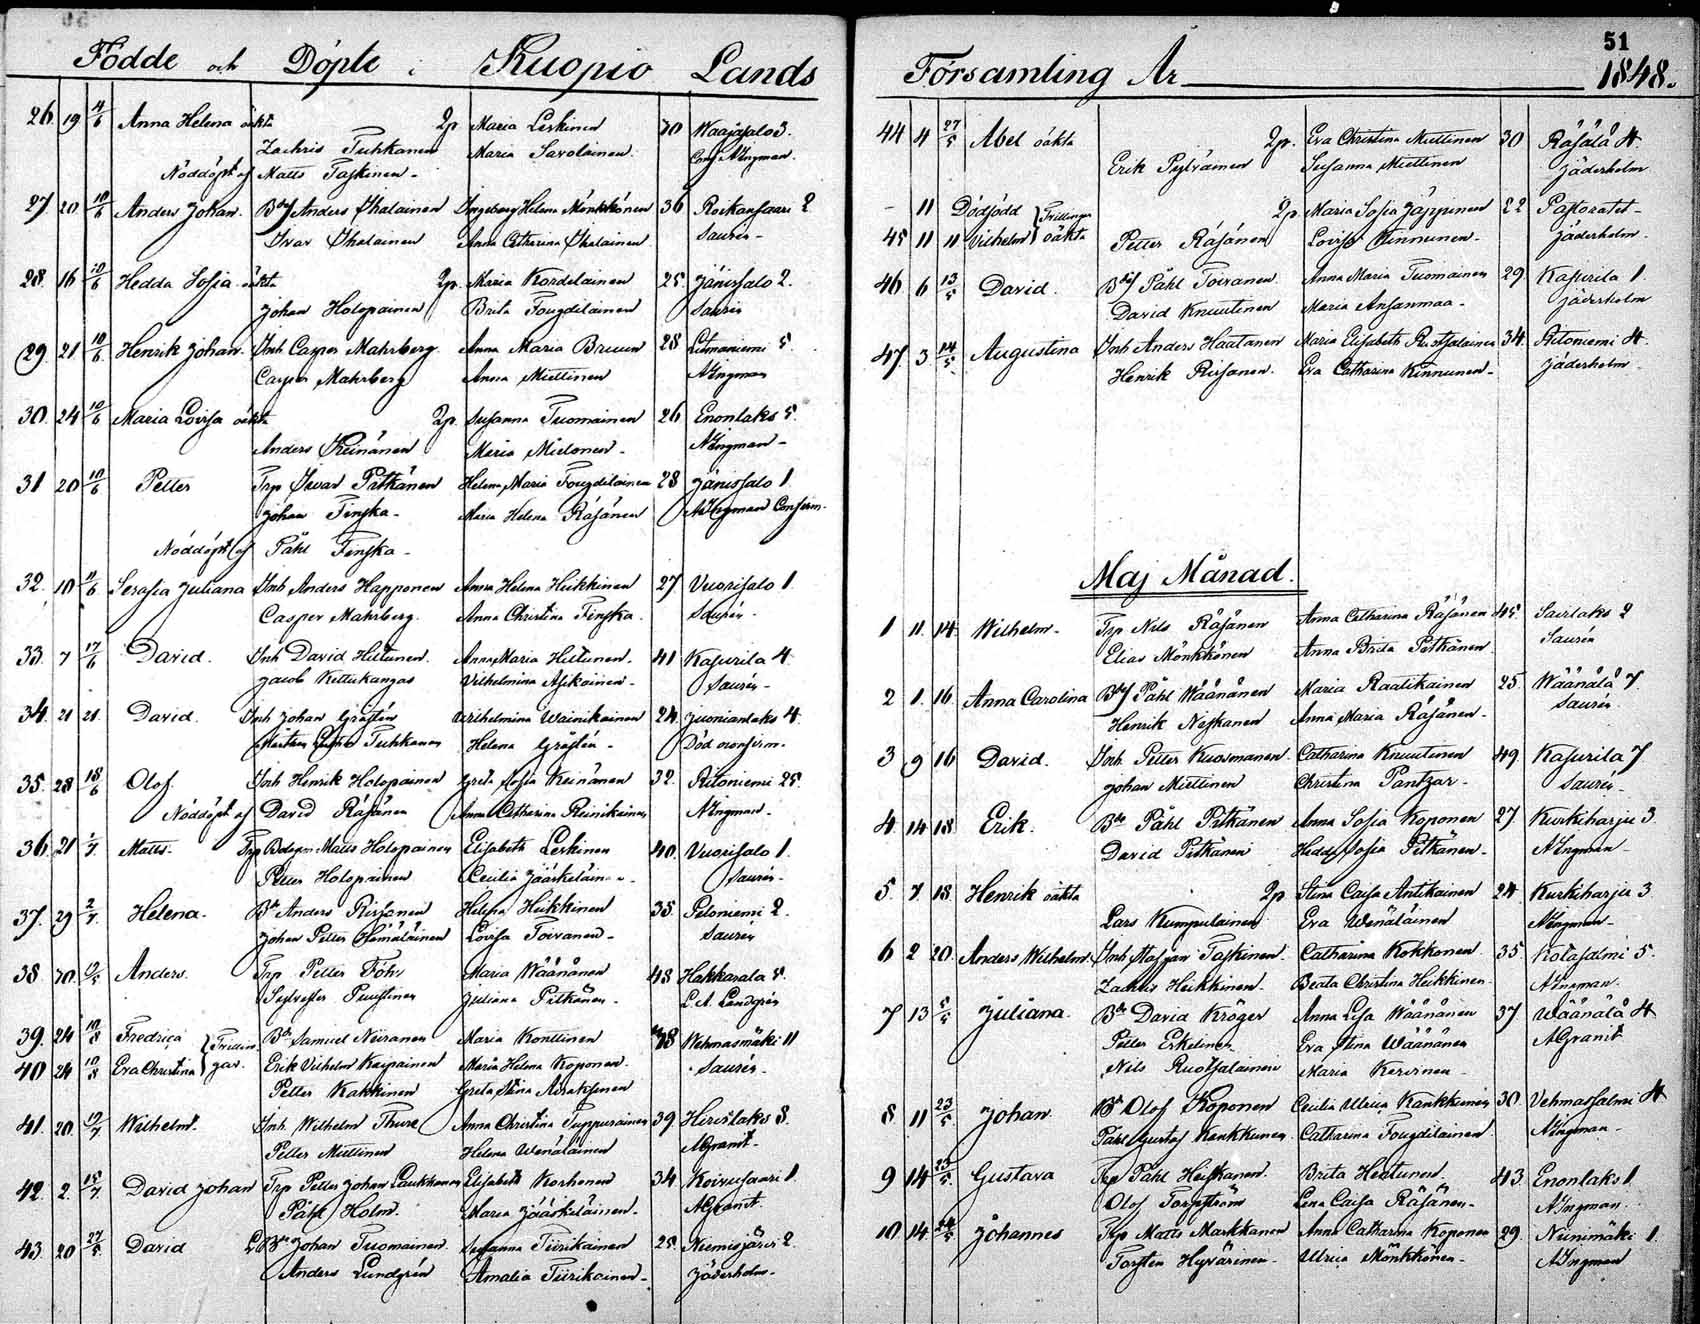 51
Födde och Döpte i Kuopio Lands Församling År 1848.
26. 19 4/6 Anna Helena oäkta 2p Maria Leskinen 30 Waajasalo 3.
Zachris Tuhkanen Maria Savolainen. Conf. AIngman.
Nöddöpt af Matts Taskinen -
27 20 10/6 Anders Johan. Anders Ihalainen Ingeborg Helena Mönkkönen 36 Roikansaari 2
Ivar Ihalainen Anna Catharina Ihalainen Saurén -
28. 16 10/6 Hedda Sofia oäkta 2p. Maria Kordelainen 25. Jänissalo 2.
Johan Holopainen Brita Fougdelainen Saurén
29. 21 10/6 Henrik Johan. Inh Casper Mahrberg. Anna Maria Bruun 28 5
Casper Mahrberg Anna Miettinen AIngman
30. 24 10/6 Maria Lovisa oäkta 2p. Susanna Tuomainen 26 Enonlaks 5.
Anders Keinänen Maria Mietonen - AIngman -
31 20 10/6 Petter Trp Ivar Pitkänen Helena Maria Fougdelainen 28 Jänissalo 1.
Johan Finska - Maria Helena Räsänen AIngman Confirm.
Nöddöpt af Påhl Finska -
32. 10 11/6 Serafia Juliana Inh Anders Happonen Anna Helena Heikkinen 27 Vuorisalo 1.
Casper Mahrberg. Anna Christina Finska. Saurén -
33. 7 17/6 David. Inh David Hiltunen. Anna Maria Hiltunen. 41 Kasurila 4.
Jacob Kettukangas Vilhelmina Asikainen - Saurén -
34. 21 21. David. Inh Johan Grästén Wilhelmina Wainikainen 24. Juonionlaks 4.
Tuhkanen Helena Grästén - Död oconfirm.
35. 28 18/6 Olof Inh Henrik Holopainen Greta Sofia Keinänen 32. Ritoniemi 25.
Nöddöpt af David Räsänen Anna Catharina Reinikainen AIngman -
36. 21 1/7. Matts. Trp Matts Holopainen Elisabeth Leskinen 40. Vuorisalo 1.
Petter Holopainen Cecilia Jääskeläinen - Saurén -
37. 29 2/7. Helena. Bd Anders Rissanen Helena Heikkinen 35. Puloniemi 2.
Johan Petter Hämäläinen Lovisa Toivanen - Saurén
38 30. Anders. Trp Petter Föhr Maria Wäänänen 48 Hakkarala 5.
Sylvester Puustinen Juliana Pitkänen. L.A. Landgrén
39. 24 10/8 Fredrica Bd Samuel Neiranen Maria Konttinen 38 Wehmasmäki 11
40 24 10/8 Eva Christina Tvillingar. Erik Vilhelm Kaipainen Maria Helena Koponen. Saurén -
Petter Kakkinen Greta Stina Airaksinen
41. 20. 12/7 Wilhelm. Inh. Wilhelm Thure Anna Christina Tuppurainen 39. Hirvilaks 8.
Petter Miettinen Helena Wenäläinen AGranit -
42. 2. 15/7 David Johan Trp Petter Johan Laukkanen Elisabeth Korhonen 34 Koivusaari 1.
Påhl Holm. Maria Jääskeläinen. AGranit.
43. 20 27/5 David Johan Tuomainen Susanna Tiirikainen 25. Niemisjärvi 2.
Anders Lundgrén Amalia Tiirikainen - Jäderholm -
44 4 27/5 Abel oäkta 2p. Eva Christina Miettinen 30 Räsälä 4.
Erik Pylvänen Susanna Miettinen Jäderholm
- 11 Dödfödd 2p. Maria Sofia Jäppinen 22 Pastoratet -
45 11 11 Vilhelm Tvillingar oäkta Petter Räsänen Lovisa Kinnunen - Jäderholm.
46. 6 13/5 David. Påhl Toivanen. Anna Maria Tuomainen 29 Kasurila 1.
David Knuutinen Maria Ansanmaa - Jäderholm
47. 3 14/5. Augustina Inh Anders Haatanen Maria Elisabeth Ruotsalainen 34. Ritoniemi 4.
Henrik Risanen. Eva Catharina Kinnunen - Jäderholm -
Maj Månad.
1 11. 14. Wilhelm - Trp Nils Räsänen Anna Catharina Räsänen 45. Savilaks 2
Elias Mönkkönen Anna Brita Pitkänen. Saurén
2 1. 16. Anna Carolina Påhl Wäänänen Maria Raatikainen 25. Wäänälä 7
Henrik Niskanen Anna Maria Räsänen - Saurén
3 9 16 David. Inh Petter Kuosmanen. Catharina Knuutinen 49. Kasurila 7
Johan Miettinen Christina Pantzar - Saurén -
4. 14 18 Erik. Bd Påhl Pitkänen Anna Sofia Koponen 27 Kurkiharju 3.
David Pitkänen Hedda Sofia Pitkänen - AIngman -
5. 7. 18. Henrik oäkta 2p Stina Caisa Antikainen 24 Kurkiharju 3
Lars Kumpulainen Eva Wenäläinen AIngman -
6 2 20. Anders Wilhelm. Inh Staffan Taskinen. Catharina Kokkonen 35. 5.
Zachris Heikkinen. Beata Christina Heikkinen. AIngman.
7 13 5/5 Juliana. Bd David Kröger Anna Lisa Wäänänen 37 Wäänälä 4
Petter Eskelinen Eva Stina Wäänänen AGranit
Nils Ruotsalainen Maria Kervinen -
8. 11 23/5. Johan. Bd Olof Koponen Cecilia Ulrica Kankkunen 30. Vehmassalmi 4
Påhl Gustaf Kankkunen. Catharina Fougdelainen AIngman -
9 14 23/5. Gustava Trp Påhl Heiskanen. Brita Huttunen. 43. Enonlaks 1.
Olof Torpström Lena Caisa Räsänen - AIngman.
10. 14 24/5 Johannes Trp Matts Markkanen Anna Catharina Koponen 29. Niinimäki 1.
Torsten Hyvärinen - Ulrica Mönkkönen - AIngman